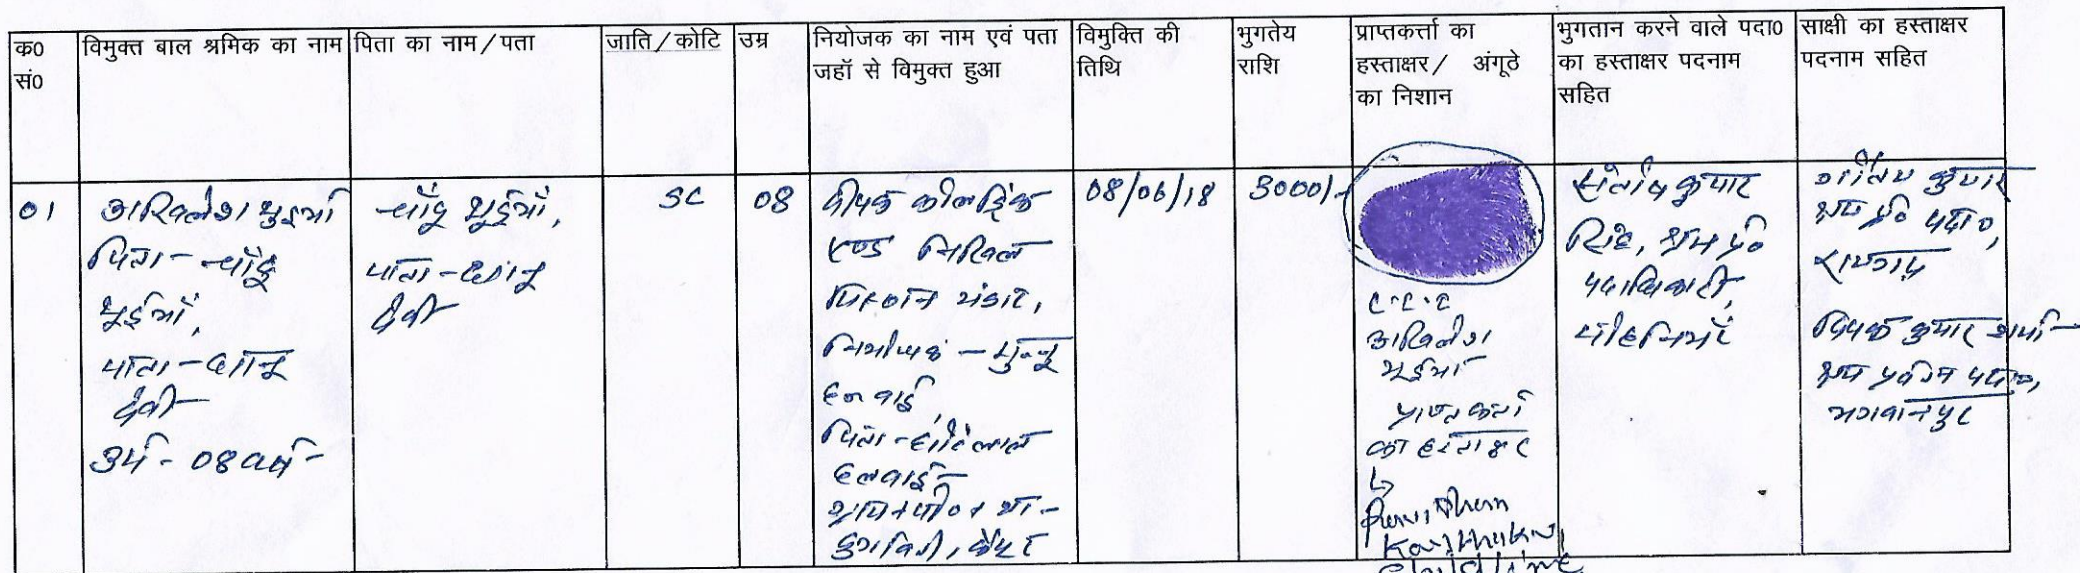 क0 सं0
विमुक्त बाल श्रमिक का नाम
पिता का नाम/पता
जाति/कोटि
उम्र
नियोजक का नाम एवं पता
जहॉ से विमुक्त हुआ
विमुक्ति की
तिथि
भुगतेय
राशि
प्राप्तकर्त्ता का
हस्ताक्षर/ अंगूठे
का निशान
भुगतान करने वाले पदा0
का हस्ताक्षर पदनाम
सहित
साक्षी का हस्ताक्षर
पदनाम सहित
01
अखिलेश भुइयाँ
पिता -
भुईयाँ,
माता -
देवी
08 वर्ष -
भुईयाँ,
माता -
देवी
SC
08
दीपक कोलड्रिंक
एण्ड निखिल
मिष्ठान भंडार,
नियोजक - मुन्नू
हलवाई,
पिता - छोटेलाल
हलवाई
थाना -
कुदरा
08/06/18
3000/-
अखिलेश
भुईयाँ
प्राप्तकर्ता
का हस्ताक्षर
संतोष कुमार
सिंह, श्रम प्र0
पदाधिकारी,
मोहनियाँ
कुमार
श्रम प्र0 पदा0,
रामगढ़
दीपक कुमार शर्मा
श्रम प्रवर्तन पदा0,
भगवानपुर